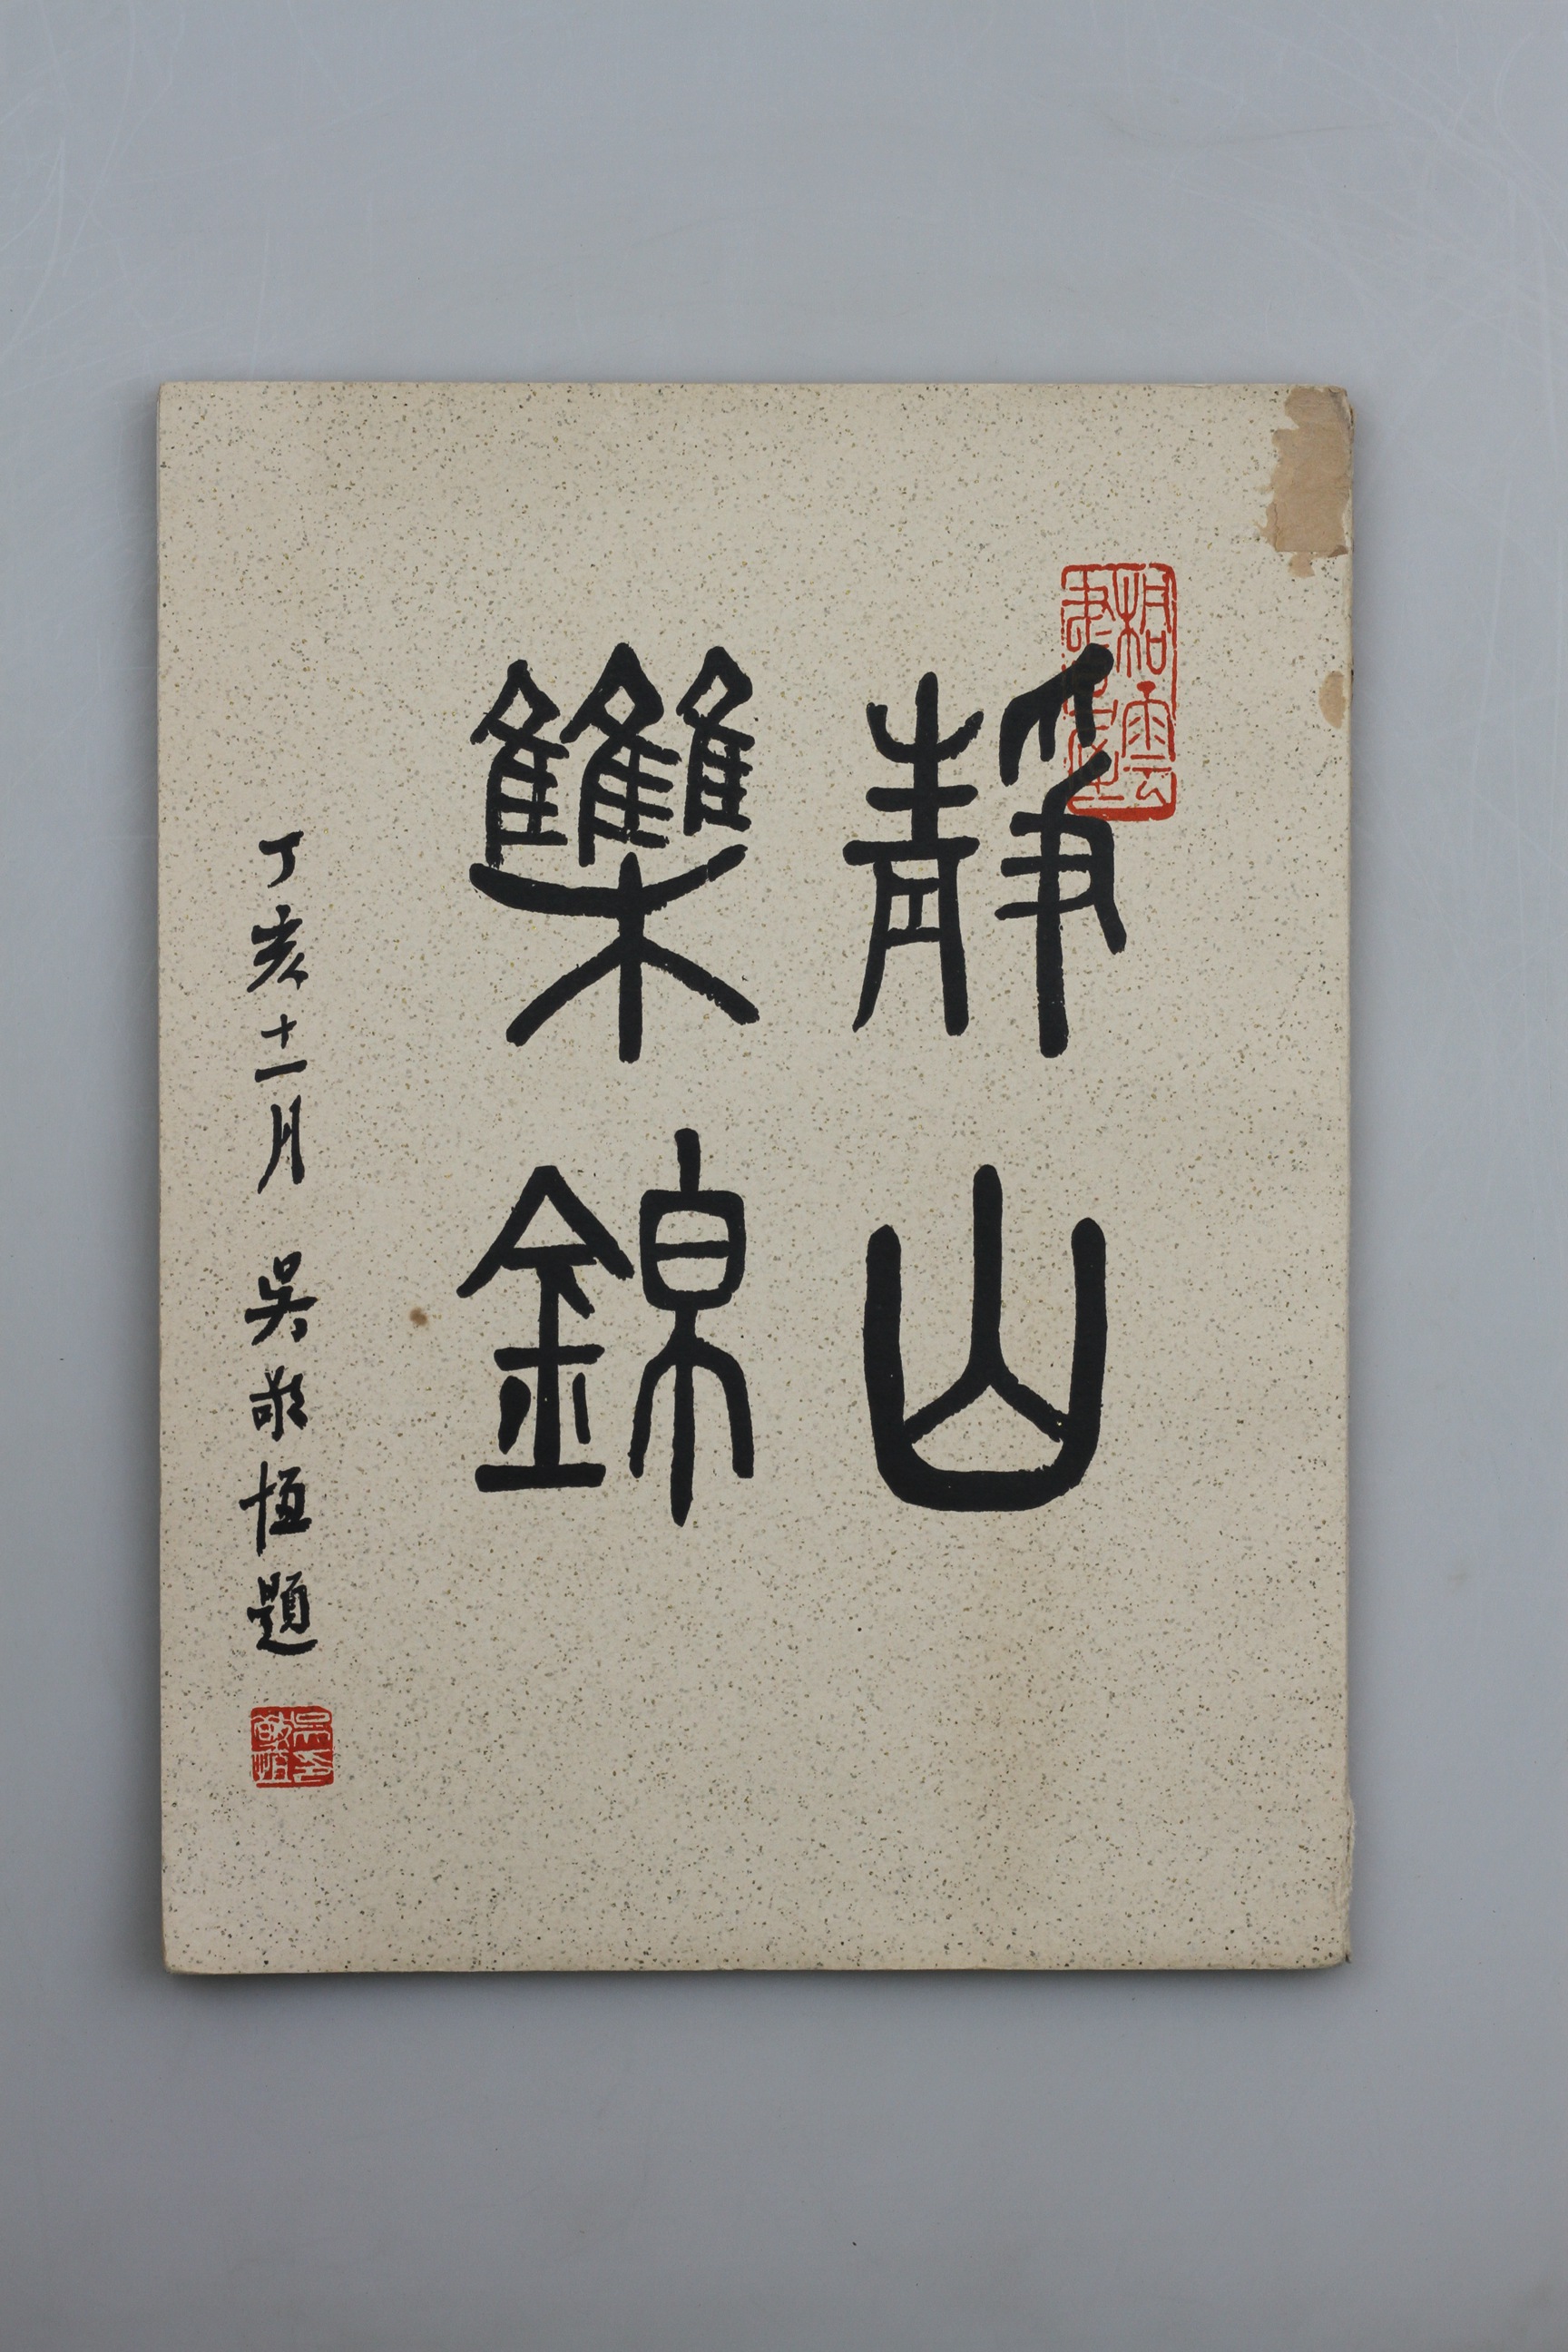 靜山
雧錦
丁亥十一月 吳敬恆題